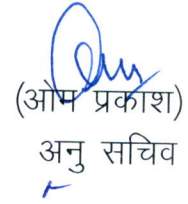 (ओम प्रकाश)
अनु सचिव